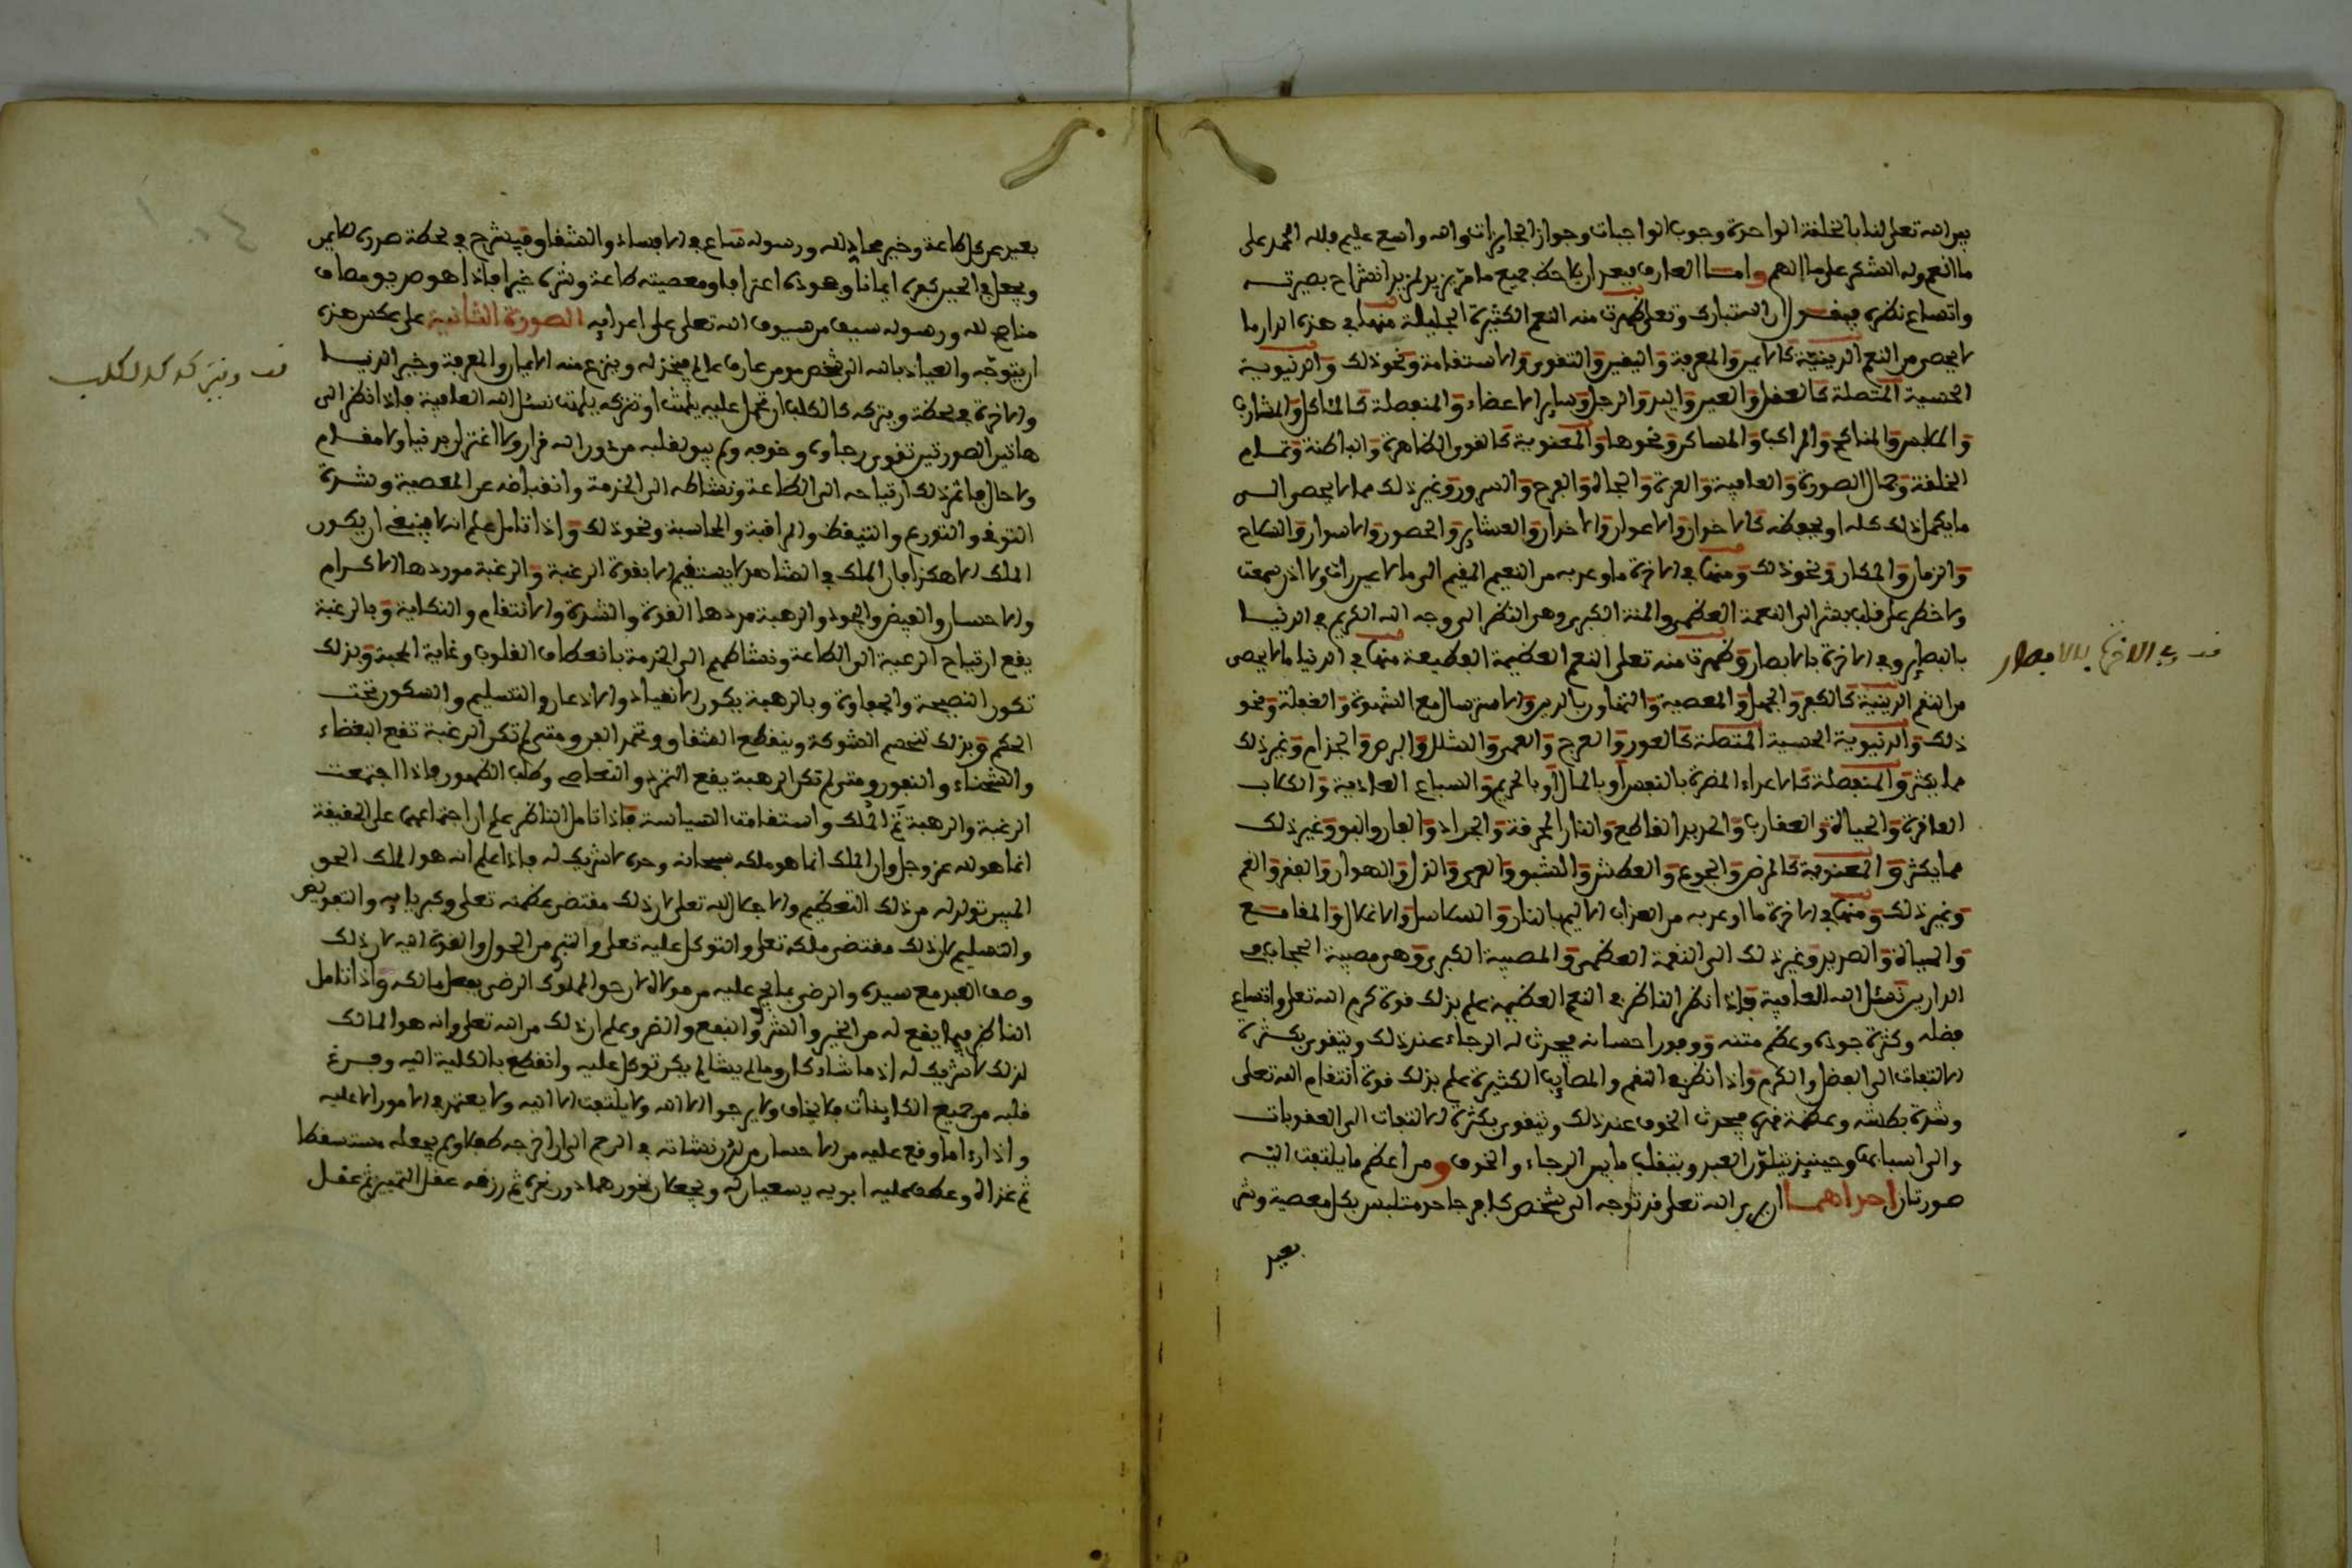 بين الله تعلى لنا بالخلفة الواحدة وجوب الواجبات وجواز الجايزات والله واسع عليم فلله الحمد على
ما انعم وله الشكر على ما الهم واما العارف فبعد ان يلاحظ جميع ما مر يزيد لمزيد انشراح بصيرته
واتساع نظره فيقول ان الله تبارك وتعلى ظهرت منه النعم الكثيرة الجليلة منها في هذه الدار ما
لا يحصى من النعم الدينية كالايمن والمعرفة واليقين والتقوى والاستقامة ونحو ذلك والدنيوية
الحسية المتصلة كالعقل والعين واليد والرجل وساير الاعضاء والمنفصلة كالمئاكل والمشارب
والملابس والمناكح والمراكب والمساكن ونحوها والمعنوية كالقوى الظاهرة والباطنة وتمام
الخلقة وجمال الصورة والعافية والعزة والجاه والفرح والسرور وغير ذلك مما لا يحصى الى
ما يكمل ذلك كله او بعضه كالاخوان والاعوان والاخدان والعشاير والحصون والاسوار والسلاح
والزمان والمكان ونحو ذلك ومنها في الاخرة ما وعد به من النعيم المقيم الى ما لا عين رات ولا اذن سمعت
ولا خطر على قلب بشر الى النعمة العظمى والمنة الكبرى وهى النظر الى وجه الله الكريم في الدنيا
بالبصاير وفي الاخرة بالابصار وظهرت منه تعلى النقم العظيمة الفظيعة منها في الدنيا ما لا يحصى
من النقم الدينية كالكفر والجهل والمعصية والتهاون بالدين والاسترسال مع الشهوة والغفلة ونحو
ذلك والدنيوية الحسية المتصلة كالعور والعرج والعمى والشلل والبرص والجذام وغير ذلك
مما يكثر والمنفصلة كالاعداء المضرة بالنفس او بالمال او بالحريم والسباع العادية والكلاب
العاقرة والحيات والعقارب والحديد القاطع والنار المحرقة والجراد والفار والبق وغير ذلك
مما يكثر والمعنوية كالمرض والجوع والعطش والشبق والعرى والذل والهوان والفقر والغم
وغير ذلك ومنها في الاخرة ما اوعد به من العذاب الاليم بالنار والسلاسل والاغلال والمقامع
والحيات والصديد وغير ذلك الى النقمة العظمى والمصيبة الكبرى وهى مصيبة الحجاب في
الدارين نسئل الله العافية فاذا نظر الناظر في النعم العظيمة علم بذلك قوة كرم الله تعلى واتساع
فضله وكثرة جوده وعظم منته ووفور احسانه فيحدث له الرجاء عند ذلك ويتقوى بكثرة
الالتفات الى الفضل والكرم واذا نظر في النقم والمصايب الكثيرة علم بذلك قوة انتقام الله تعلى
وشدة بطشه وعظمة قهره فيحدث الخوف عند ذلك ويتقوى بكثرة الالتفات الى العقوبات
والى اسبابها وحينئذ يتلون العبد ويتقلب ما بين الرجاء والخوف ومن اعظم ما يلتفت اليه
صورتان احداهما ان يرى الله تعلى قد توجه الى شخص كافر جاحد متلبس بكل معصية وشر
بعيد
وفي الاخرة بالابصار
بعيد عن كل طاعة وخير محاد لله ورسوله ساع في الافساد والشقاق فينشرح في لحظة صدره للايمن
ويجعل في الحين كفره ايمانا وجحوده اعترافا ومعصيته طاعة وشره خيرا فاذا هو صديق مصاف
مناصح لله ورسوله سيف من سيوف الله تعلى على اعدايه الصورة الثانية على عكس هذه
ان يتوجه والعياذ بالله الى شخص مومن عارف عالم فيخذله وينزع منه الايمان والمعرفة وخير الدنيا
والاخرة في لحظة ويتركه كالكلب ان تحمل عليه يلهث او تتركه يلهث نسئل الله العافية فاذا نظر الى
هاتين الصورتين تقوى رجاؤه وخوفه ولم يبق لقلبه من دون الله قرار ولا اغترار بدنيا ولا مقام
ولا حال فاثمر ذلك ارتياحه الى الطاعة ونشاطه الى الخدمة وانقباضه عن المعصية وشدة
التوقي والتورع والتيقظ والمراقبة والمحاسبة ونحو ذلك واذا تامل علم انه لا ينبغي ان يكون
الملك الا هكذا فان الملك في الشاهد لا يستقيم الا بقوة الرغبة والرهبة موردها الاكرام
والاحسان والفيض والجود والرهبة موردها القوة والشدة والانتقام والنكاية وبالرغبة
يقع ارتياح الرعية الى الطاعة ونشاطهم الى الخدمة بانعطاف القلوب وغاية المحبة وبذلك
تكون النصيحة والحفاوة وبالرهبة يكون الانقياد والاذعان والتسليم والسكون تحت
الحكم وبذلك تنحسم الشوكة وينقطع الشقاق ومتى لم تكن الرغبة تقع البغضاء
والشحناء والنفور ومتى لم تكن الرهبة يقع التمرد والتعاصي وطلب الظهور فاذا اجتمعت
الرغبة والرهبة تم الملك واستقامت السياسة فاذا تامل الناظر علم ان اجتماعهما على الحقيقة
انما هو لله عز وجل وان الملك انما هو ملكه سبحانه وحده لا شريك له فاذا علم انه هو الملك الحق
المبين تولد له من ذلك التعظيم والاجلال لله تعلى لان ذلك مقتضى عظمته تعلى وكبريايه والتفويض
والتسليم لان ذلك مقتضى ملكه تعلى والتوكل عليه تعلى والتبري من الحول والقوة اليه لان ذلك
وصف العبد مع سيده والرضى بما يجري عليه من مولاه لان حق المملوك الرضى بفعل مالكه واذا تامل
الناظر فيما يقع له من الخير والشر والنفع والضر وعلم ان ذلك من الله تعلى وانه هو المالك
لذلك لا شريك له اذ ما شاء كان وما لم يشا لم يكن توكل عليه وانقطع بالكلية اليه وفرغ
قلبه من جميع الكاينات فلا يخاف ولا يرجو الا الله ولا يلتفت الا اليه ولا يعتمد في الامور الا عليه
واذا راى ما وقع عليه من الاحسان من لدن نشاته في الرحم الى ان اخرجه طفلا ولم يجعله مستسقطا
ثم غذاه وعطف عليه ابويه يسعيان له ويجعلان نحورهما دون نحره ثم رزقه عقل التمييز ثم عقل
ويتركه كالكلب